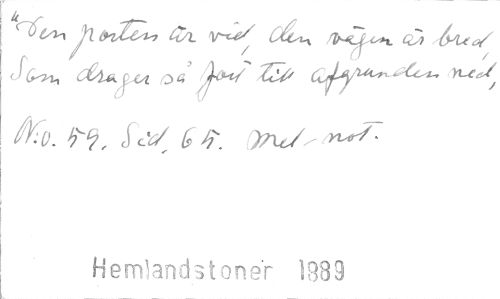 "Den porten är vid, den vägen är bred,
Som drager så fort till afgrunden ned,
N:o. 59. Sid. 65. Mel-not.
Hemlandstoner 1889